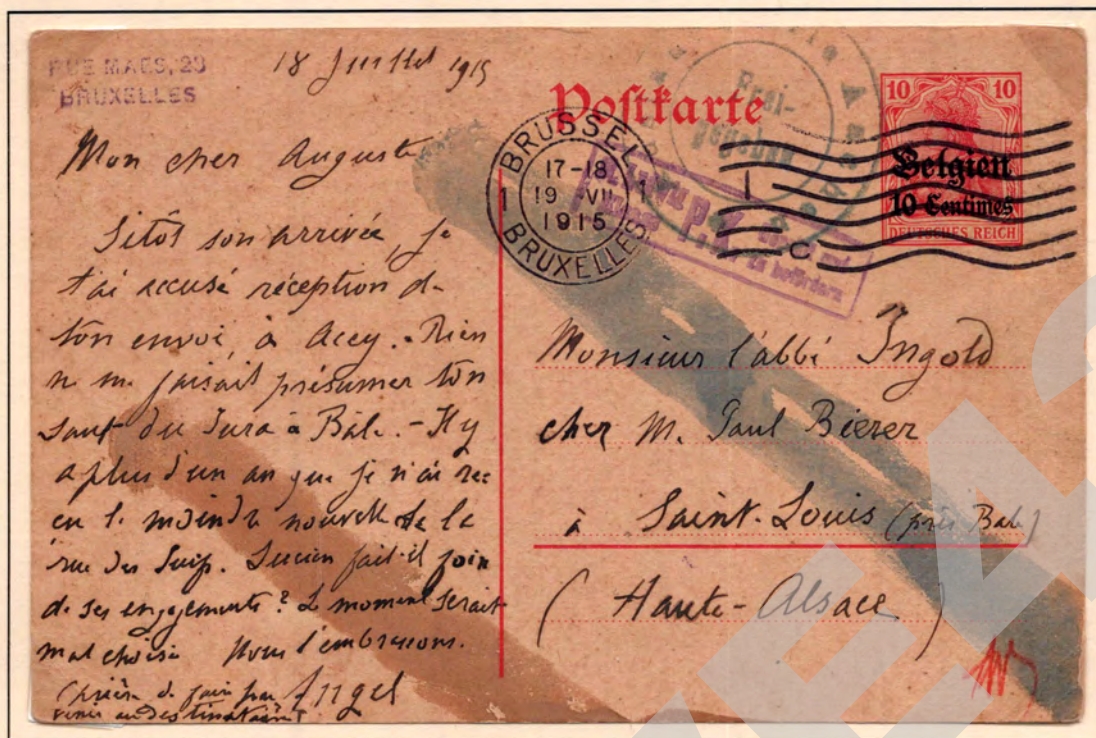 RUE MAES, 23
BRUXELLES
18 Juillet 1915
Mon cher Auguste
Sitôt son arrivée, je
t'ai accusé réception de
ton envoi, à Acey. - Rien
ne me faisait présumer ton
saut du Jura à Bâle. - Il y
a plus d'un an que je n'ai re-
çu le moindre nouvelle de la
rue des
Lucien fait-il
de ses engagements? Le moment serait
mal choisi Nous t'embrassons.
Angel
(Prière de faire par
venir au destinataire)
Postkarte
Frei-
gegeben
BRUSSEL
17-18
1 19 VII 1
1915
BRUXELLES
zu befördern
10 10
Belgien
10 Centimes
DEUTSCHES REICH
Monsieur l'abbé Ingold
chez M. Paul Bierer
à Saint-Louis (près Bâle)
(Haute-Alsace)